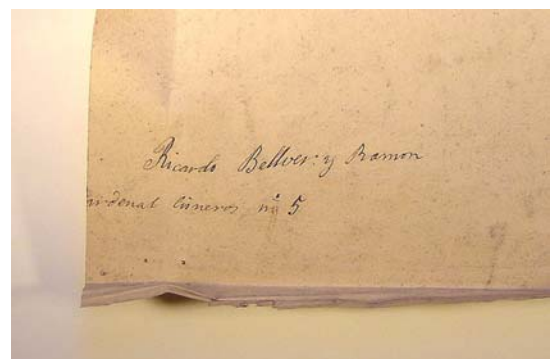 Ricardo Bellver: y Ramon
Cardenal Cisneros nº 5